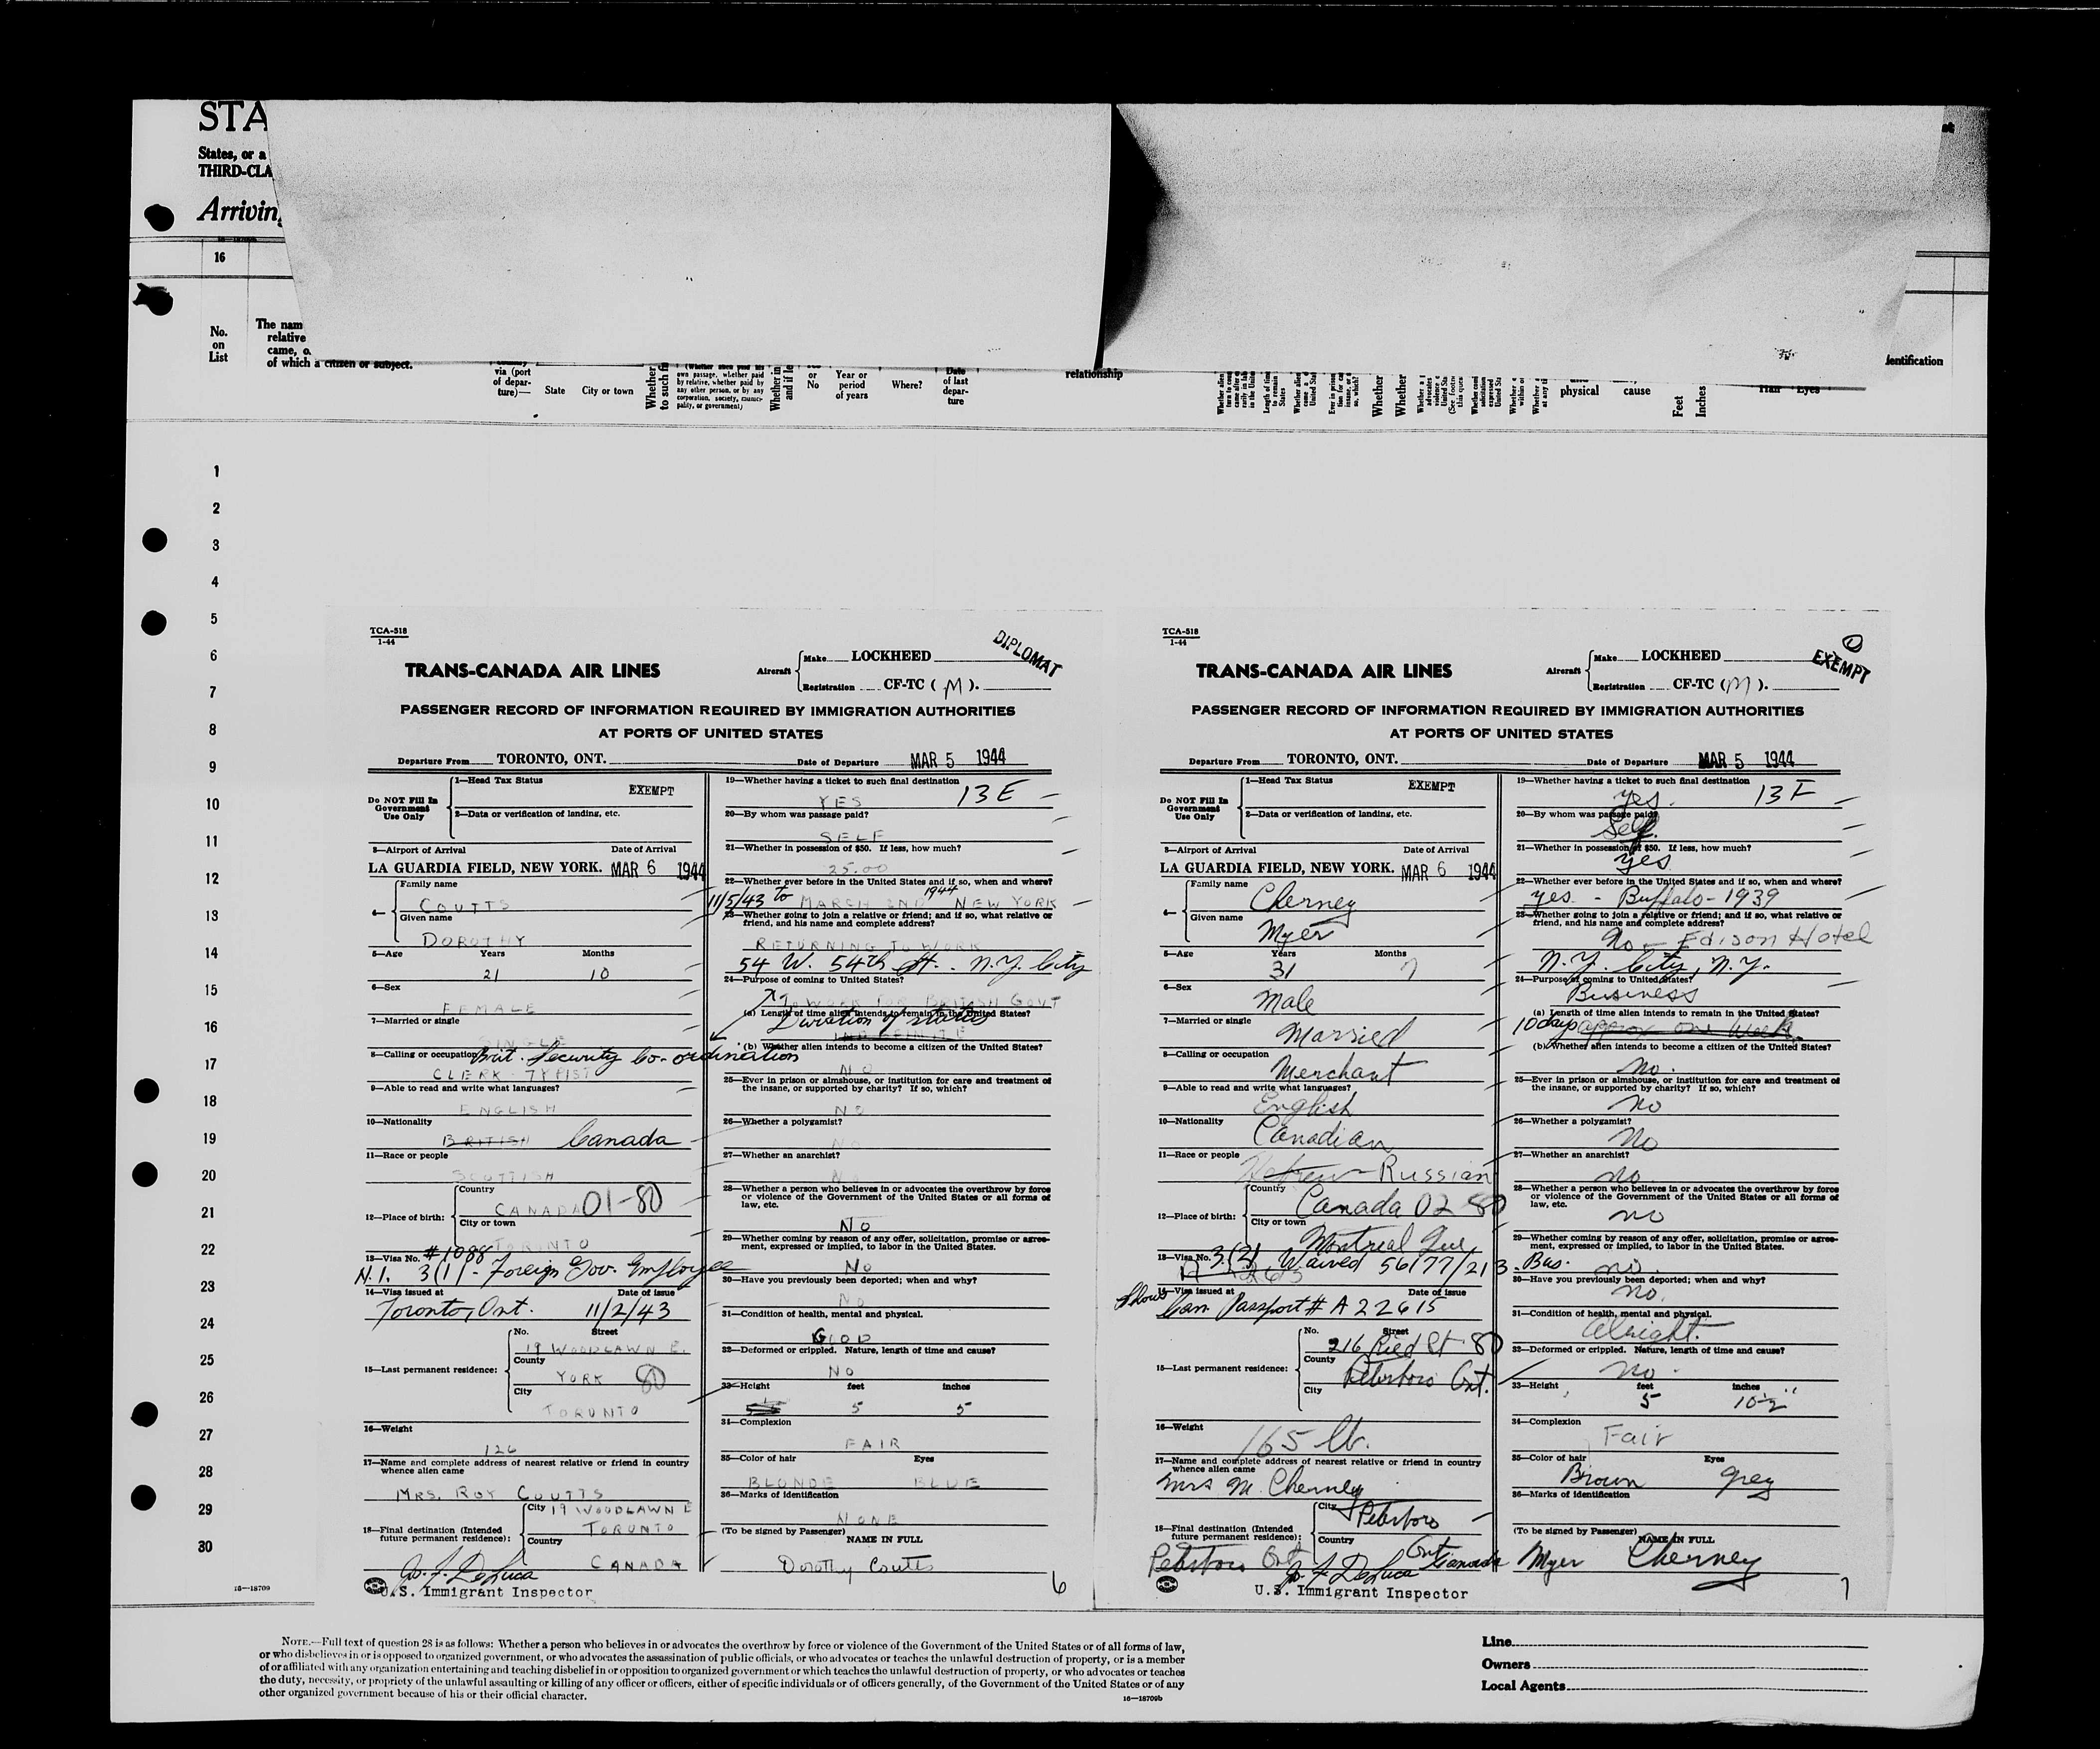 STA
States, or a
THIRD-CLA
Arriving
16
No.
on
List
The nam
relative
came, o
of which a citizen or subject.
via (port
of depar-
ture)—
State
City or town
Whether
to such fi
own passage, whether paid
by relative, whether paid by
any other person, or by any
corporation, society, munic-
pality, or government)
Whether in
and if le
or
No
Year or
period
of years
Where?
Date
of last
depar-
ture
relationship
physical
cause
Feet
Inches
Hair
Eyes
dentification
1
2
3
4
5
6
7
8
9
10
11
12
13
14
15
16
17
18
19
20
21
22
23
24
25
26
27
28
29
30
16—18709
TCA-518
1-44
DIPLOMAT
TRANS-CANADA AIR LINES
Aircraft
Make LOCKHEED
Registration CF-TC (M).
PASSENGER RECORD OF INFORMATION REQUIRED BY IMMIGRATION AUTHORITIES
AT PORTS OF UNITED STATES
Departure From TORONTO, ONT.
Date of Departure MAR 5 1944
Do NOT Fill In
Government
Use Only
1—Head Tax Status
EXEMPT
2—Data or verification of landing, etc.
3—Airport of Arrival Date of Arrival
LA GUARDIA FIELD, NEW YORK. MAR 6 1944
4—
Family name
COUTTS
Given name
DOROTHY
5—Age Years Months
21 10
6—Sex
FEMALE
7—Married or single
SINGLE
8—Calling or occupation Brit. Security Co-ordination
CLERK-TYPIST
9—Able to read and write what languages?
ENGLISH
10—Nationality
BRITISH Canada
11—Race or people
SCOTTISH
12—Place of birth:
Country
CANADA 01-80
City or town
TORONTO
13—Visa No. #1088
N.I. 3(1) - Foreign Gov. Employee
14—Visa issued at Date of issue
Toronto, Ont. 11/2/43
15—Last permanent residence:
No. Street
19 WOODLAWN E.
County
YORK 80
City
TORONTO
16—Weight
126
17—Name and complete address of nearest relative or friend in country
whence alien came
MRS. ROY COUTTS
18—Final destination (Intended
future permanent residence):
City 19 WOODLAWN E
TORONTO
Country
CANADA
J. F. DeLuca
U.S. Immigrant Inspector
19—Whether having a ticket to such final destination
YES 13 E
20—By whom was passage paid?
SELF
21—Whether in possession of $50. If less, how much?
25.00
22—Whether ever before in the United States and if so, when and where?
11/5/43 to MARCH 2ND 1944 NEW YORK
23—Whether going to join a relative or friend; and if so, what relative or
friend, and his name and complete address?
RETURNING TO WORK
54 W. 54th St. N.Y. City
24—Purpose of coming to United States?
TO WORK FOR BRITISH GOVT
(a) Length of time alien intends to remain in the United States?
Duration of status
INDEFINITE
(b) Whether alien intends to become a citizen of the United States?
NO
25—Ever in prison or almshouse, or institution for care and treatment of
the insane, or supported by charity? If so, which?
NO
26—Whether a polygamist?
NO
27—Whether an anarchist?
NO
28—Whether a person who believes in or advocates the overthrow by force
or violence of the Government of the United States or all forms of
law, etc.
NO
29—Whether coming by reason of any offer, solicitation, promise or agree-
ment, expressed or implied, to labor in the United States.
NO
30—Have you previously been deported; when and why?
NO
31—Condition of health, mental and physical.
GOOD
32—Deformed or crippled. Nature, length of time and cause?
NO
33—Height feet inches
5 5
34—Complexion
FAIR
35—Color of hair Eyes
BLONDE BLUE
36—Marks of identification
NONE
(To be signed by Passenger) NAME IN FULL
Dorothy Coutts
6
TCA-518
1-44
1
EXEMPT
TRANS-CANADA AIR LINES
Aircraft
Make LOCKHEED
Registration CF-TC (M).
PASSENGER RECORD OF INFORMATION REQUIRED BY IMMIGRATION AUTHORITIES
AT PORTS OF UNITED STATES
Departure From TORONTO, ONT.
Date of Departure MAR 5 1944
Do NOT Fill In
Government
Use Only
1—Head Tax Status
EXEMPT
2—Data or verification of landing, etc.
3—Airport of Arrival Date of Arrival
LA GUARDIA FIELD, NEW YORK. MAR 6 1944
4—
Family name
Cherney
Given name
Myer
5—Age Years Months
31 7
6—Sex
Male
7—Married or single
Married
8—Calling or occupation
Merchant
9—Able to read and write what languages?
English
10—Nationality
Canadian
11—Race or people
Hebrew Russian
12—Place of birth:
Country
Canada 02 80
City or town
Montreal Que
13—Visa No. 3(2) Waived 56177/213. Bus.
14—Visa issued at Date of issue
Shows Can Passport # A 22615
15—Last permanent residence:
No. Street
216 Ried St 80
County
Peterboro Ont.
City
16—Weight
165 lb.
17—Name and complete address of nearest relative or friend in country
whence alien came
Mrs M. Cherney
18—Final destination (Intended
future permanent residence):
City
Peterboro
Country
Peterboro Ont Ont Canada
J. F. DeLuca
U.S. Immigrant Inspector
19—Whether having a ticket to such final destination
yes. 13 F
20—By whom was passage paid?
Self.
21—Whether in possession of $50. If less, how much?
yes
22—Whether ever before in the United States and if so, when and where?
yes - Buffalo - 1939
23—Whether going to join a relative or friend; and if so, what relative or
friend, and his name and complete address?
No — Edison Hotel
N.Y. City, N.Y.
24—Purpose of coming to United States?
Business
(a) Length of time alien intends to remain in the United States?
10 days approx one week
(b) Whether alien intends to become a citizen of the United States?
no.
25—Ever in prison or almshouse, or institution for care and treatment of
the insane, or supported by charity? If so, which?
no
26—Whether a polygamist?
no
27—Whether an anarchist?
no
28—Whether a person who believes in or advocates the overthrow by force
or violence of the Government of the United States or all forms of
law, etc.
no
29—Whether coming by reason of any offer, solicitation, promise or agree-
ment, expressed or implied, to labor in the United States.
no.
30—Have you previously been deported; when and why?
no.
31—Condition of health, mental and physical.
Alright.
32—Deformed or crippled. Nature, length of time and cause?
no.
33—Height feet inches
5 10½"
34—Complexion
Fair
35—Color of hair Eyes
Brown Grey
36—Marks of identification
(To be signed by Passenger) NAME IN FULL
Myer Cherney
7
NOTE.—Full text of question 28 is as follows: Whether a person who believes in or advocates the overthrow by force or violence of the Government of the United States or of all forms of law,
or who disbelieves in or is opposed to organized government, or who advocates the assassination of public officials, or who advocates or teaches the unlawful destruction of property, or is a member
of or affiliated with any organization entertaining and teaching disbelief in or opposition to organized government or which teaches the unlawful destruction of property, or who advocates or teaches
the duty, necessity, or propriety of the unlawful assaulting or killing of any officer or officers, either of specific individuals or of officers generally, of the Government of the United States or of any
other organized government because of his or their official character.
16—18709b
Line
Owners
Local Agents